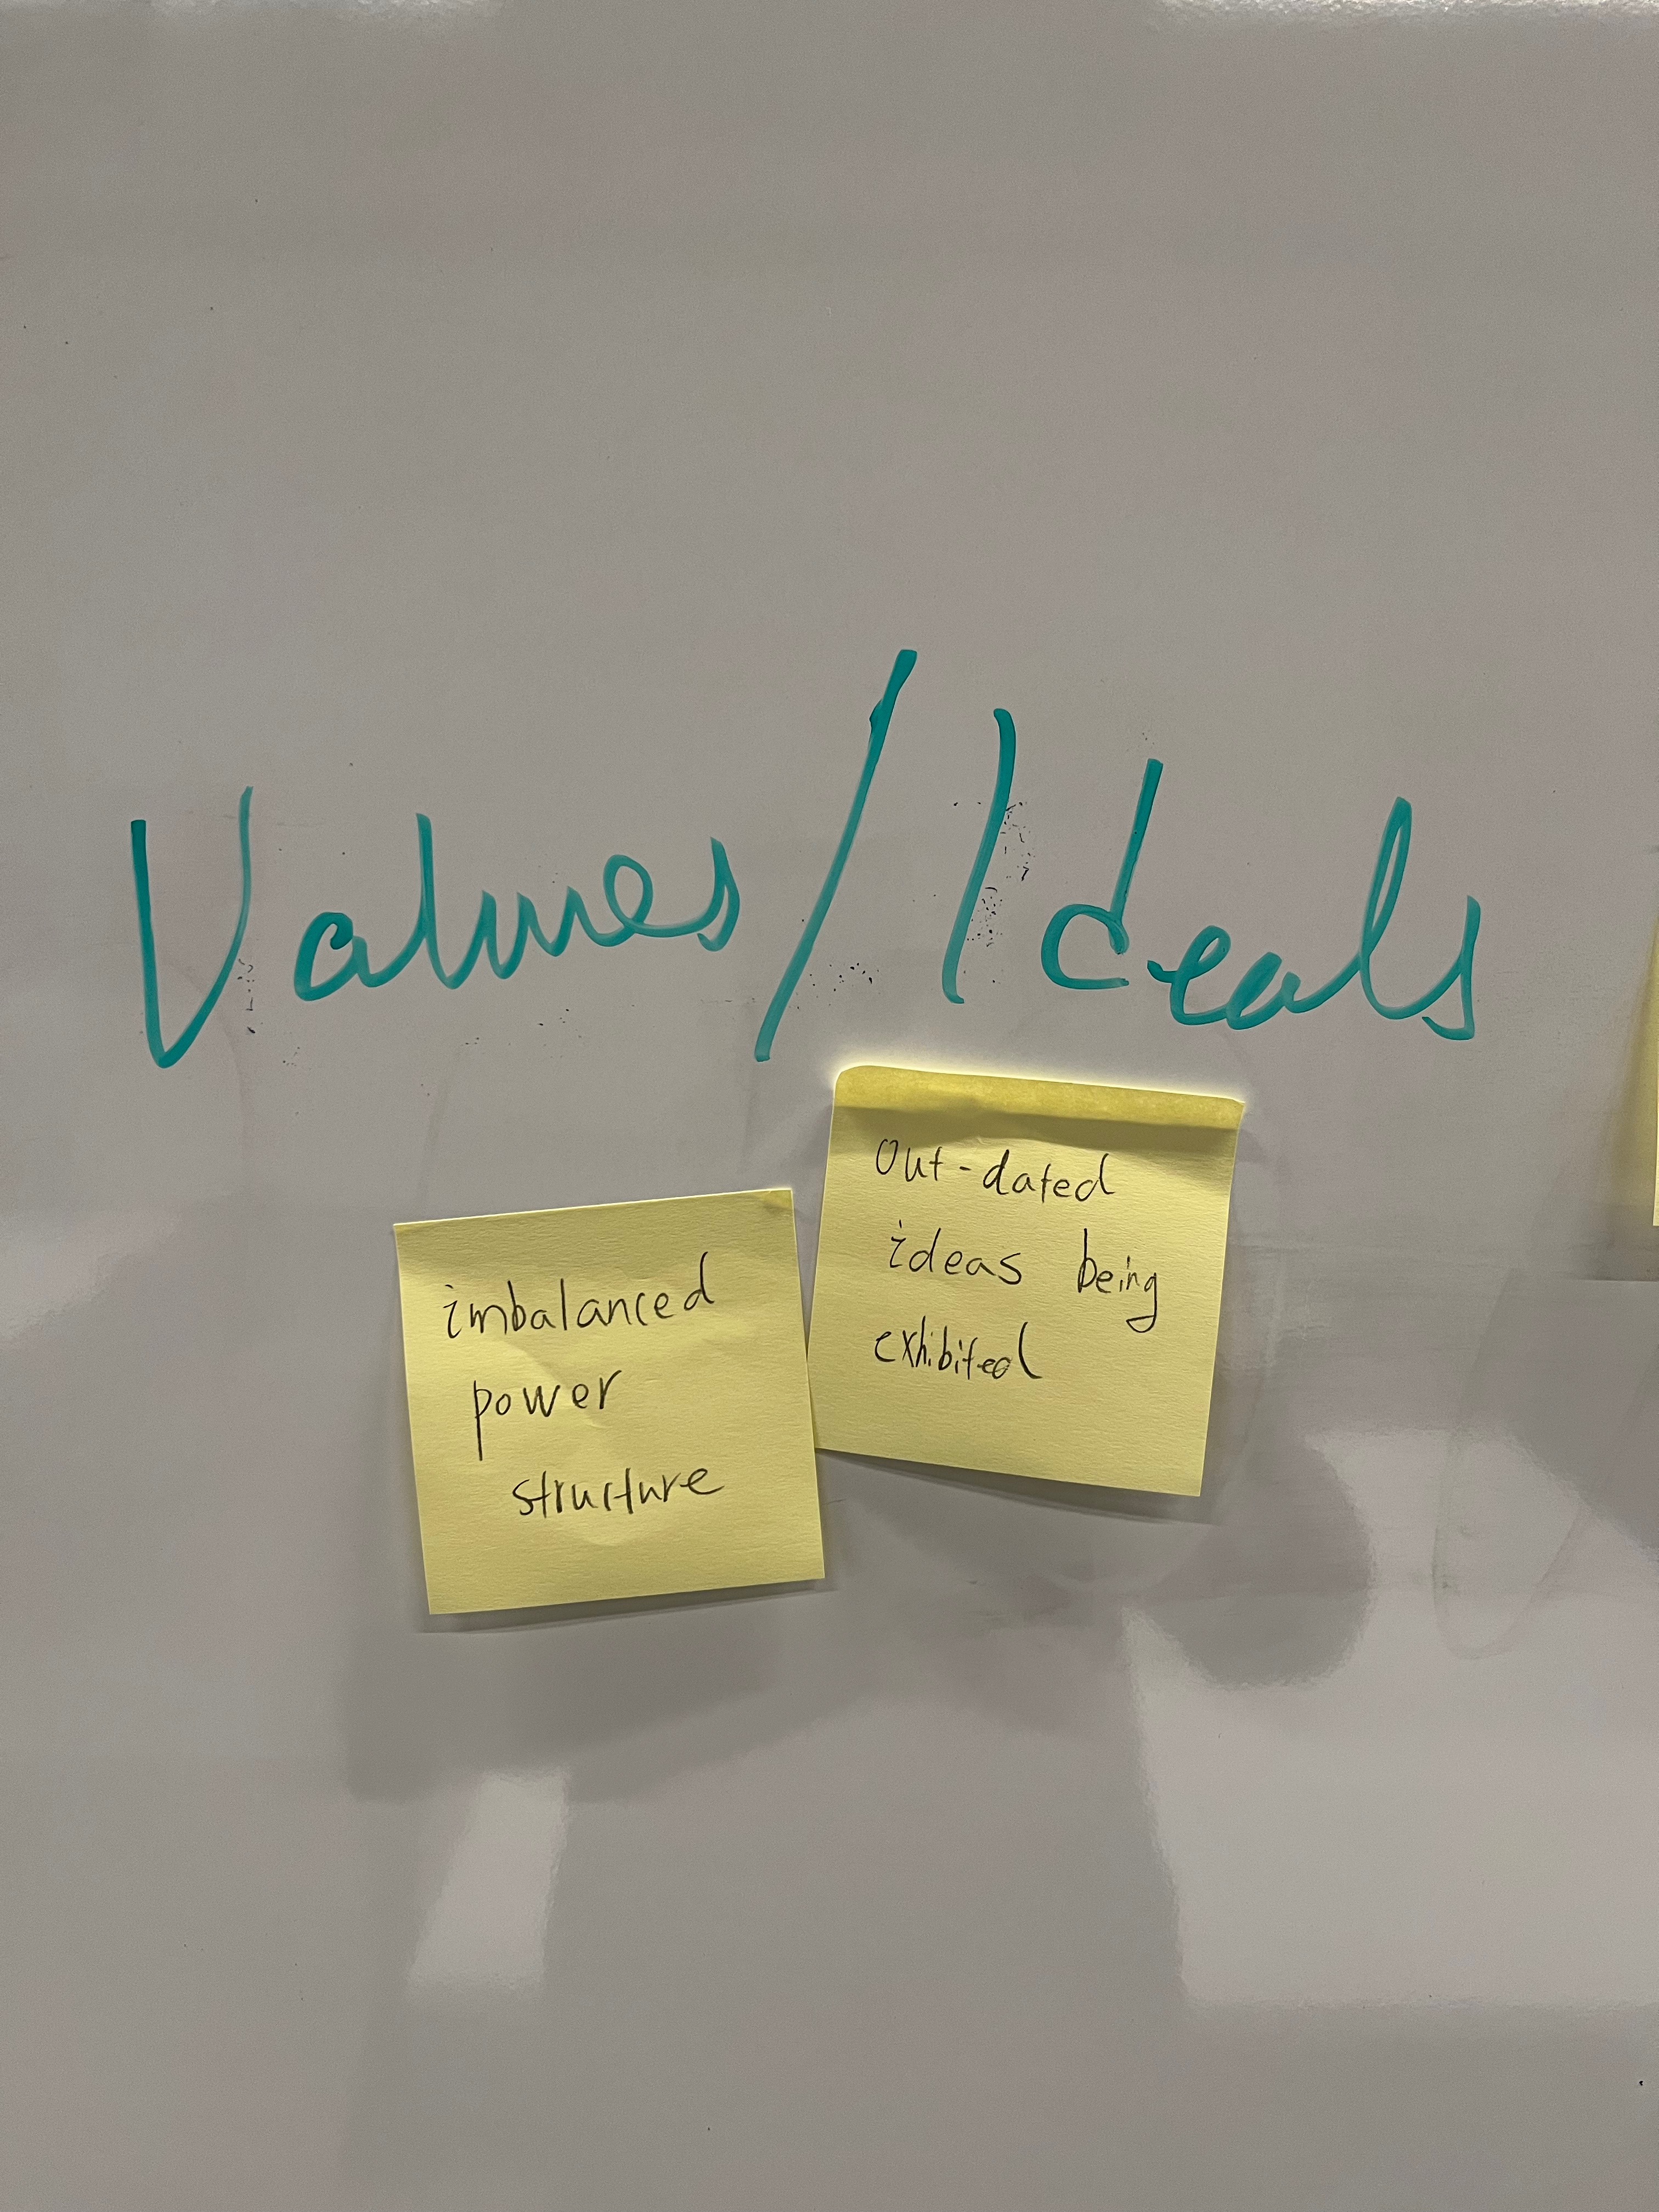 Values/Ideals
imbalanced
power
structure
Out-dated
ideas being
exhibited